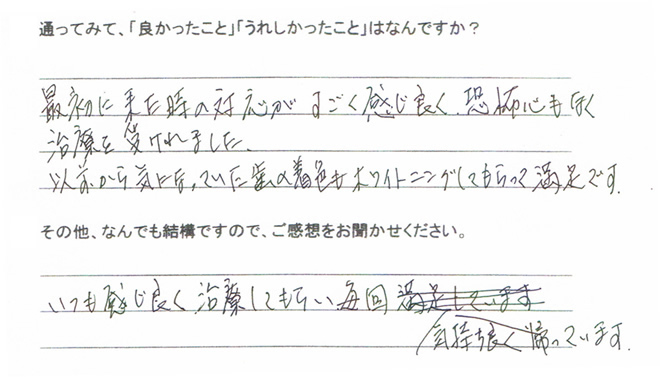 通ってみて、「良かったこと」「うれしかったこと」はなんですか？
最初に来た時の対応がすごく感じ良く、恐怖心も無く
治療を受けれました。
以前から気になっていた歯の着色もホワイトニングしてもらって満足です。
その他、なんでも結構ですので、ご感想をお聞かせください。
いつも感じ良く治療してもらい毎回 満足しています
気持ち良く帰っています。